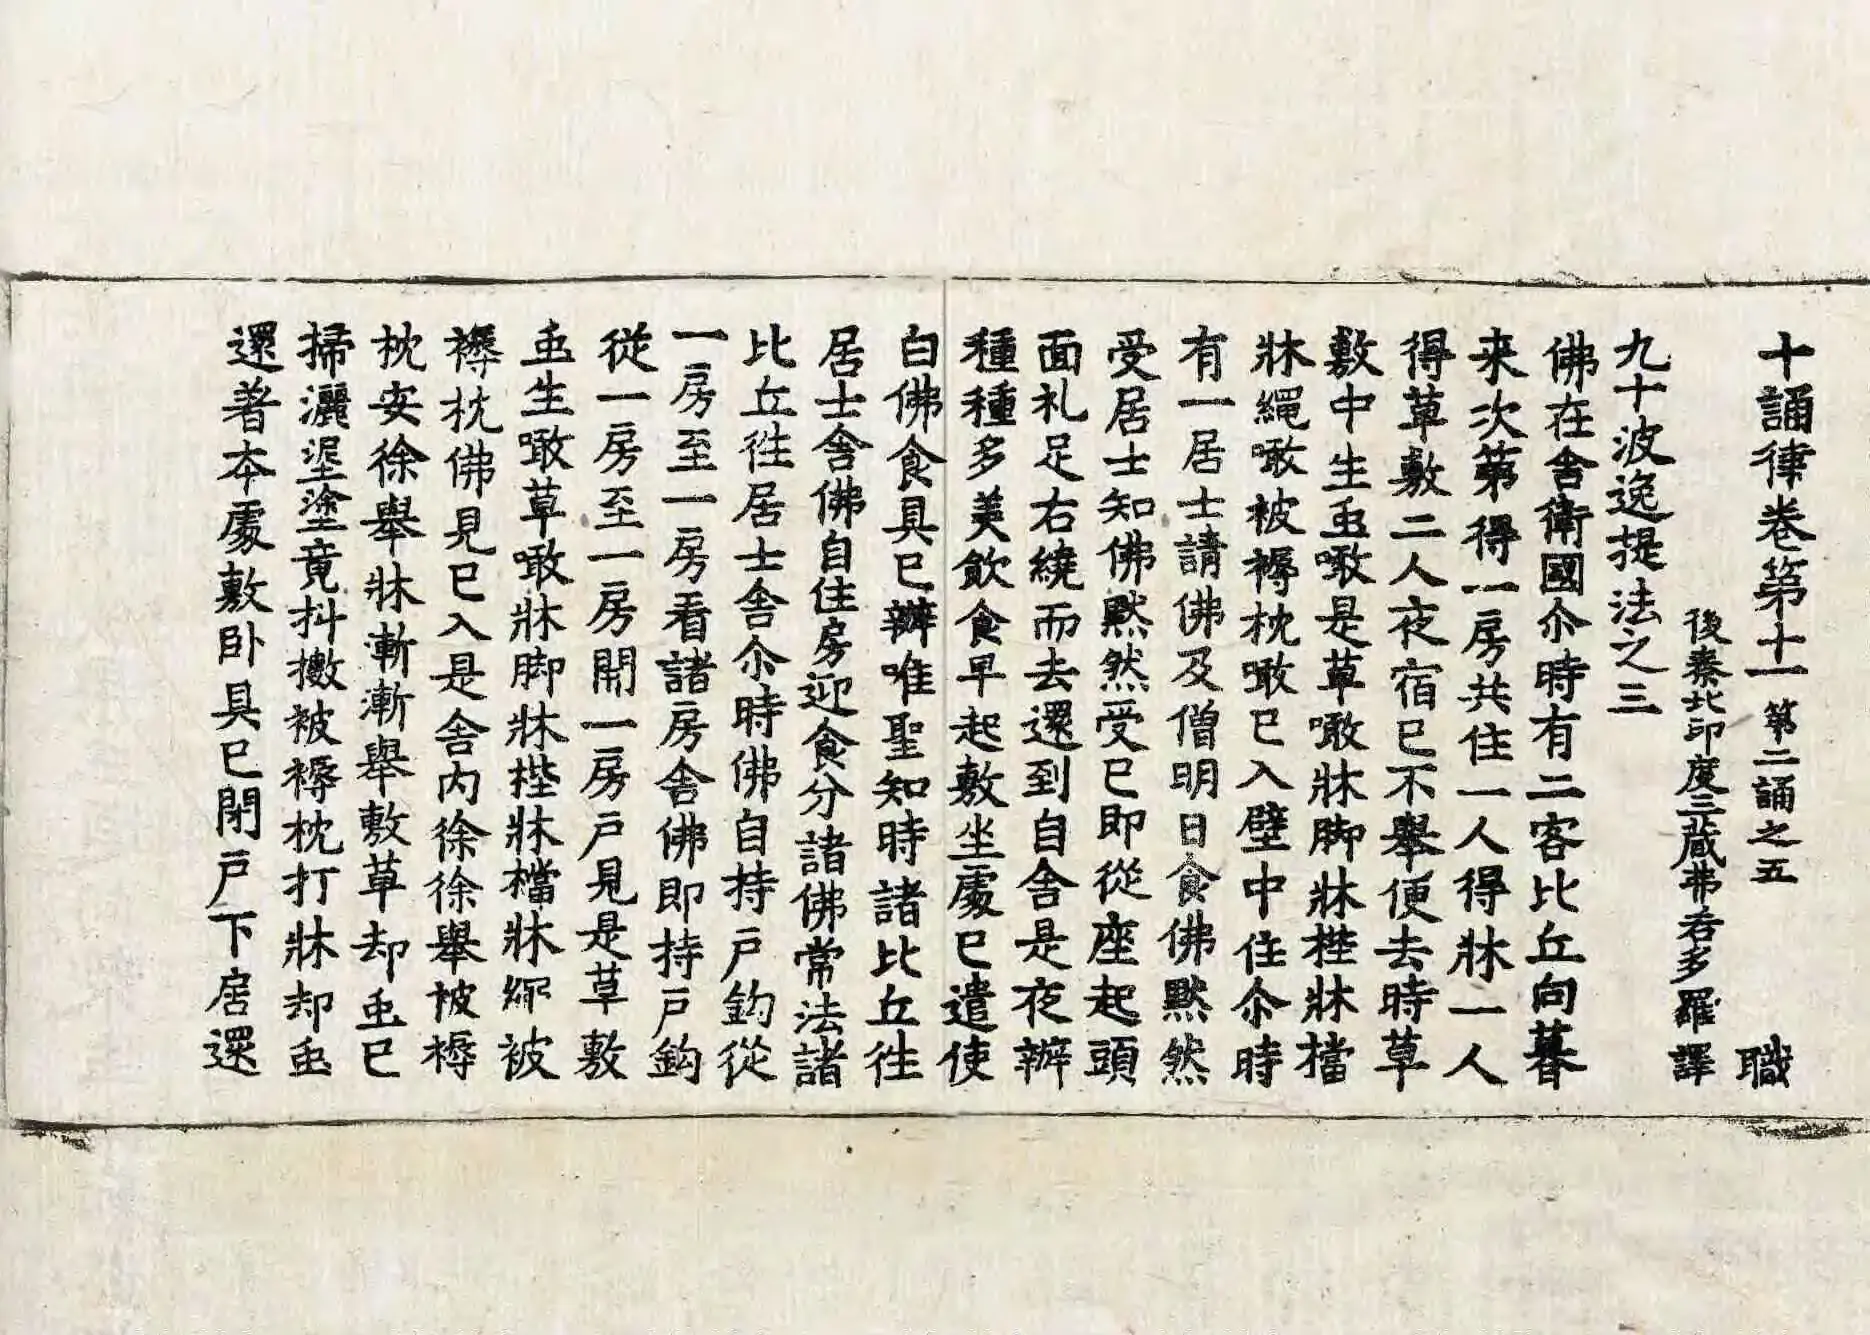 十誦律卷第十一 第二誦之五 職
後秦北印度三藏弗若多羅譯
九十波逸提法之三
佛在舍衛國尒時有二客比丘向暮
来次第得一房共住一人得牀一人
得草敷二人夜宿已不舉便去時草
敷中生䖝噉是草噉牀脚牀梐牀檔
牀繩噉被褥枕噉已入壁中住尒時
有一居士請佛及僧明日食佛默然
受居士知佛默然受已即從座起頭
面礼足右繞而去還到自舍是夜辦
種種多美飲食早起敷坐處已遣使
白佛食具已辦唯聖知時諸比丘往
居士舍佛自住房迎食分諸佛常法諸
比丘往居士舍尒時佛自持戶鉤從
一房至一房看諸房舍佛即持戶鉤
從一房至一房開一房戶見是草敷
䖝生噉草噉牀脚牀梐牀檔牀繩被
褥枕佛見已入是舍內徐徐舉被褥
枕安徐舉牀漸漸舉敷草却䖝已
掃灑埿塗竟抖擻被褥枕打牀却䖝
還著本處敷卧具已閉戶下居還